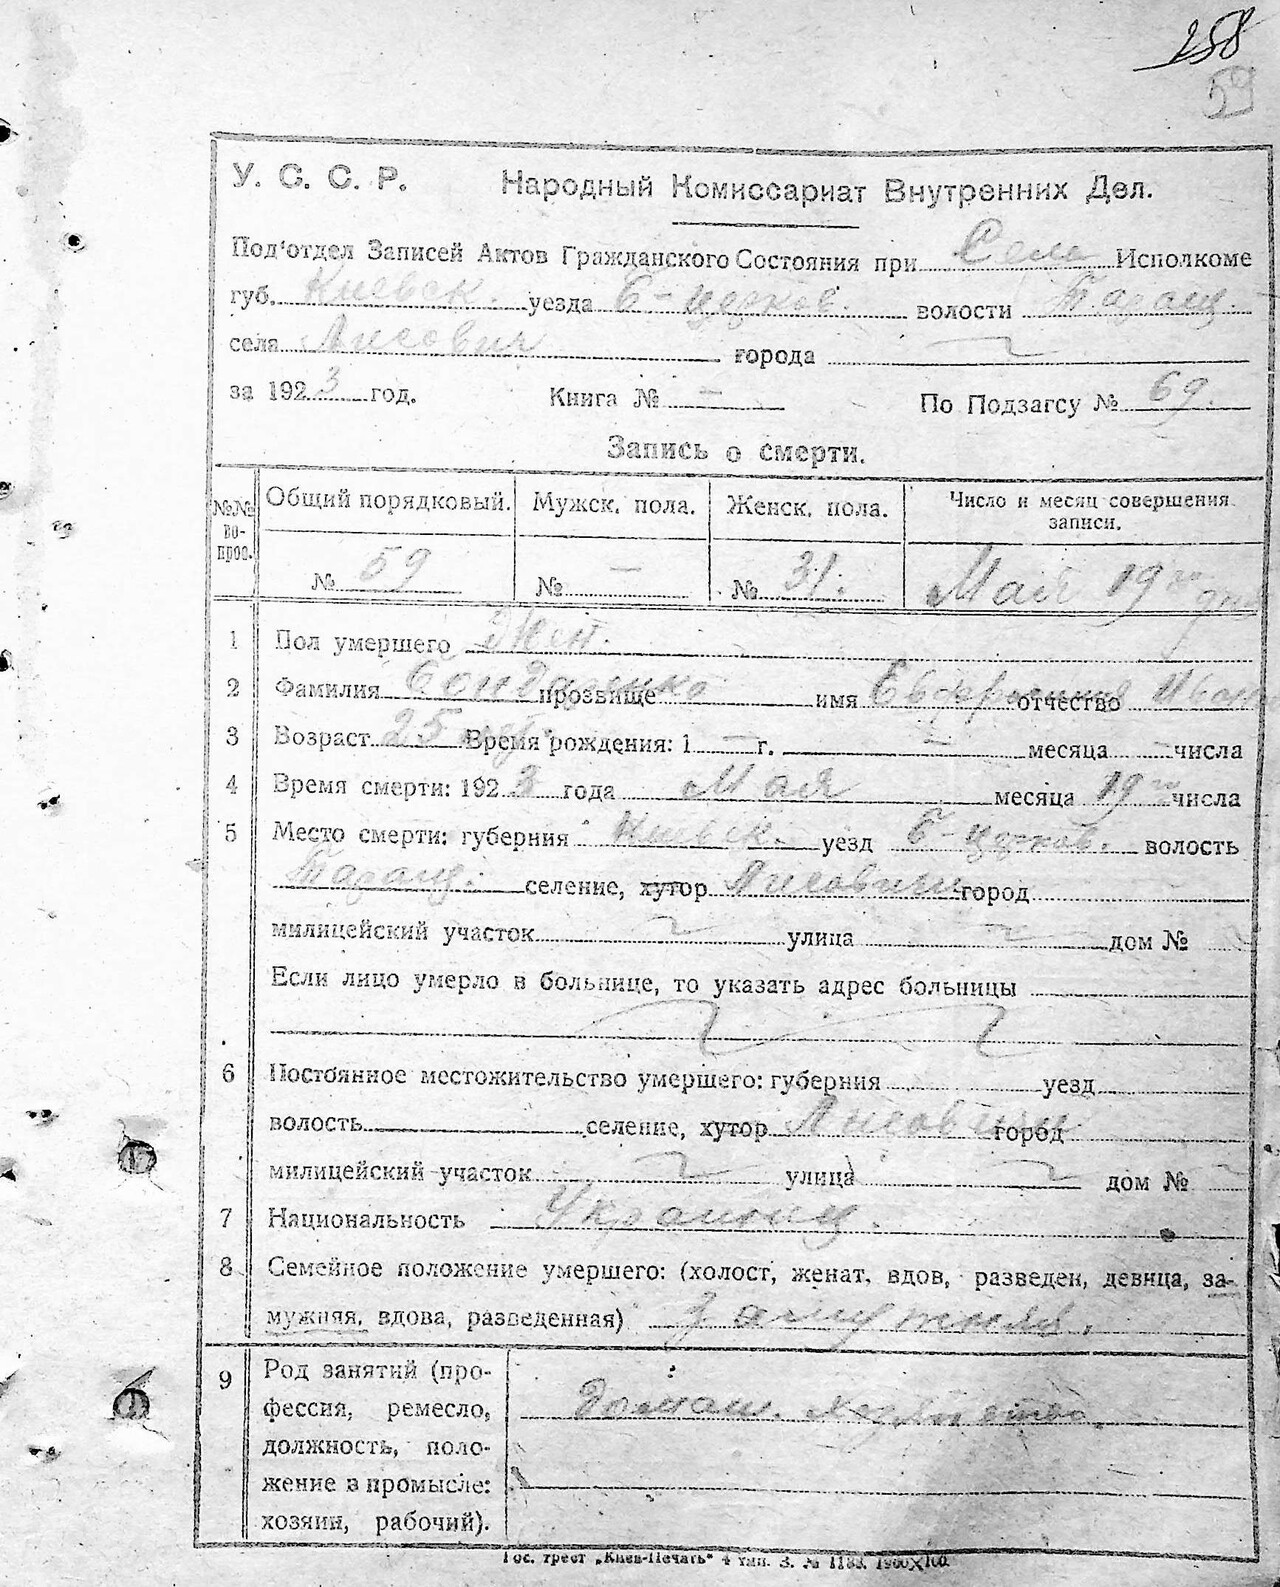 258
59
У. С. С. Р. Народный Комиссариат Внутренних Дел.
Под'отдел Записей Актов Гражданского Состояния при Села Исполкоме
губ. Киевск. уезда Б-церков. волости Таращ
села Лисович города
за 1923 год. Книга № — По Подзагсу № 69.
Запись о смерти.
№№ во-прос. Общий порядковый. Мужск. пола. Женск. пола. Число и месяц совершения записи.
№ 59 № — № 31. Мая 19го дня
1 Пол умершего Жен.
2 Фамилия Бондаренко прозвище имя Евфросиния отчество Иван
3 Возраст 25 лет. Время рождения: 1 — г. — месяца — числа
4 Время смерти: 1923 года Мая месяца 19го числа
5 Место смерти: губерния Киевск. уезд Б-церков. волость
Таращ. селение, хутор Лисовичи город
милицейский участок улица дом №
Если лицо умерло в больнице, то указать адрес больницы
6 Постоянное местожительство умершего: губерния уезд
волость селение, хутор Лисовичи город
милицейский участок улица дом №
7 Национальность Украинц.
8 Семейное положение умершего: (холост, женат, вдов, разведен, девица, за-
мужняя, вдова, разведенная) Замужняя.
9 Род занятий (про-
фессия, ремесло, Домаш. хозяйство
должность, поло-
жение в промысле:
хозяин, рабочий).
Гос. трест „Киев-Печать" 4 тип. З. № 1133.